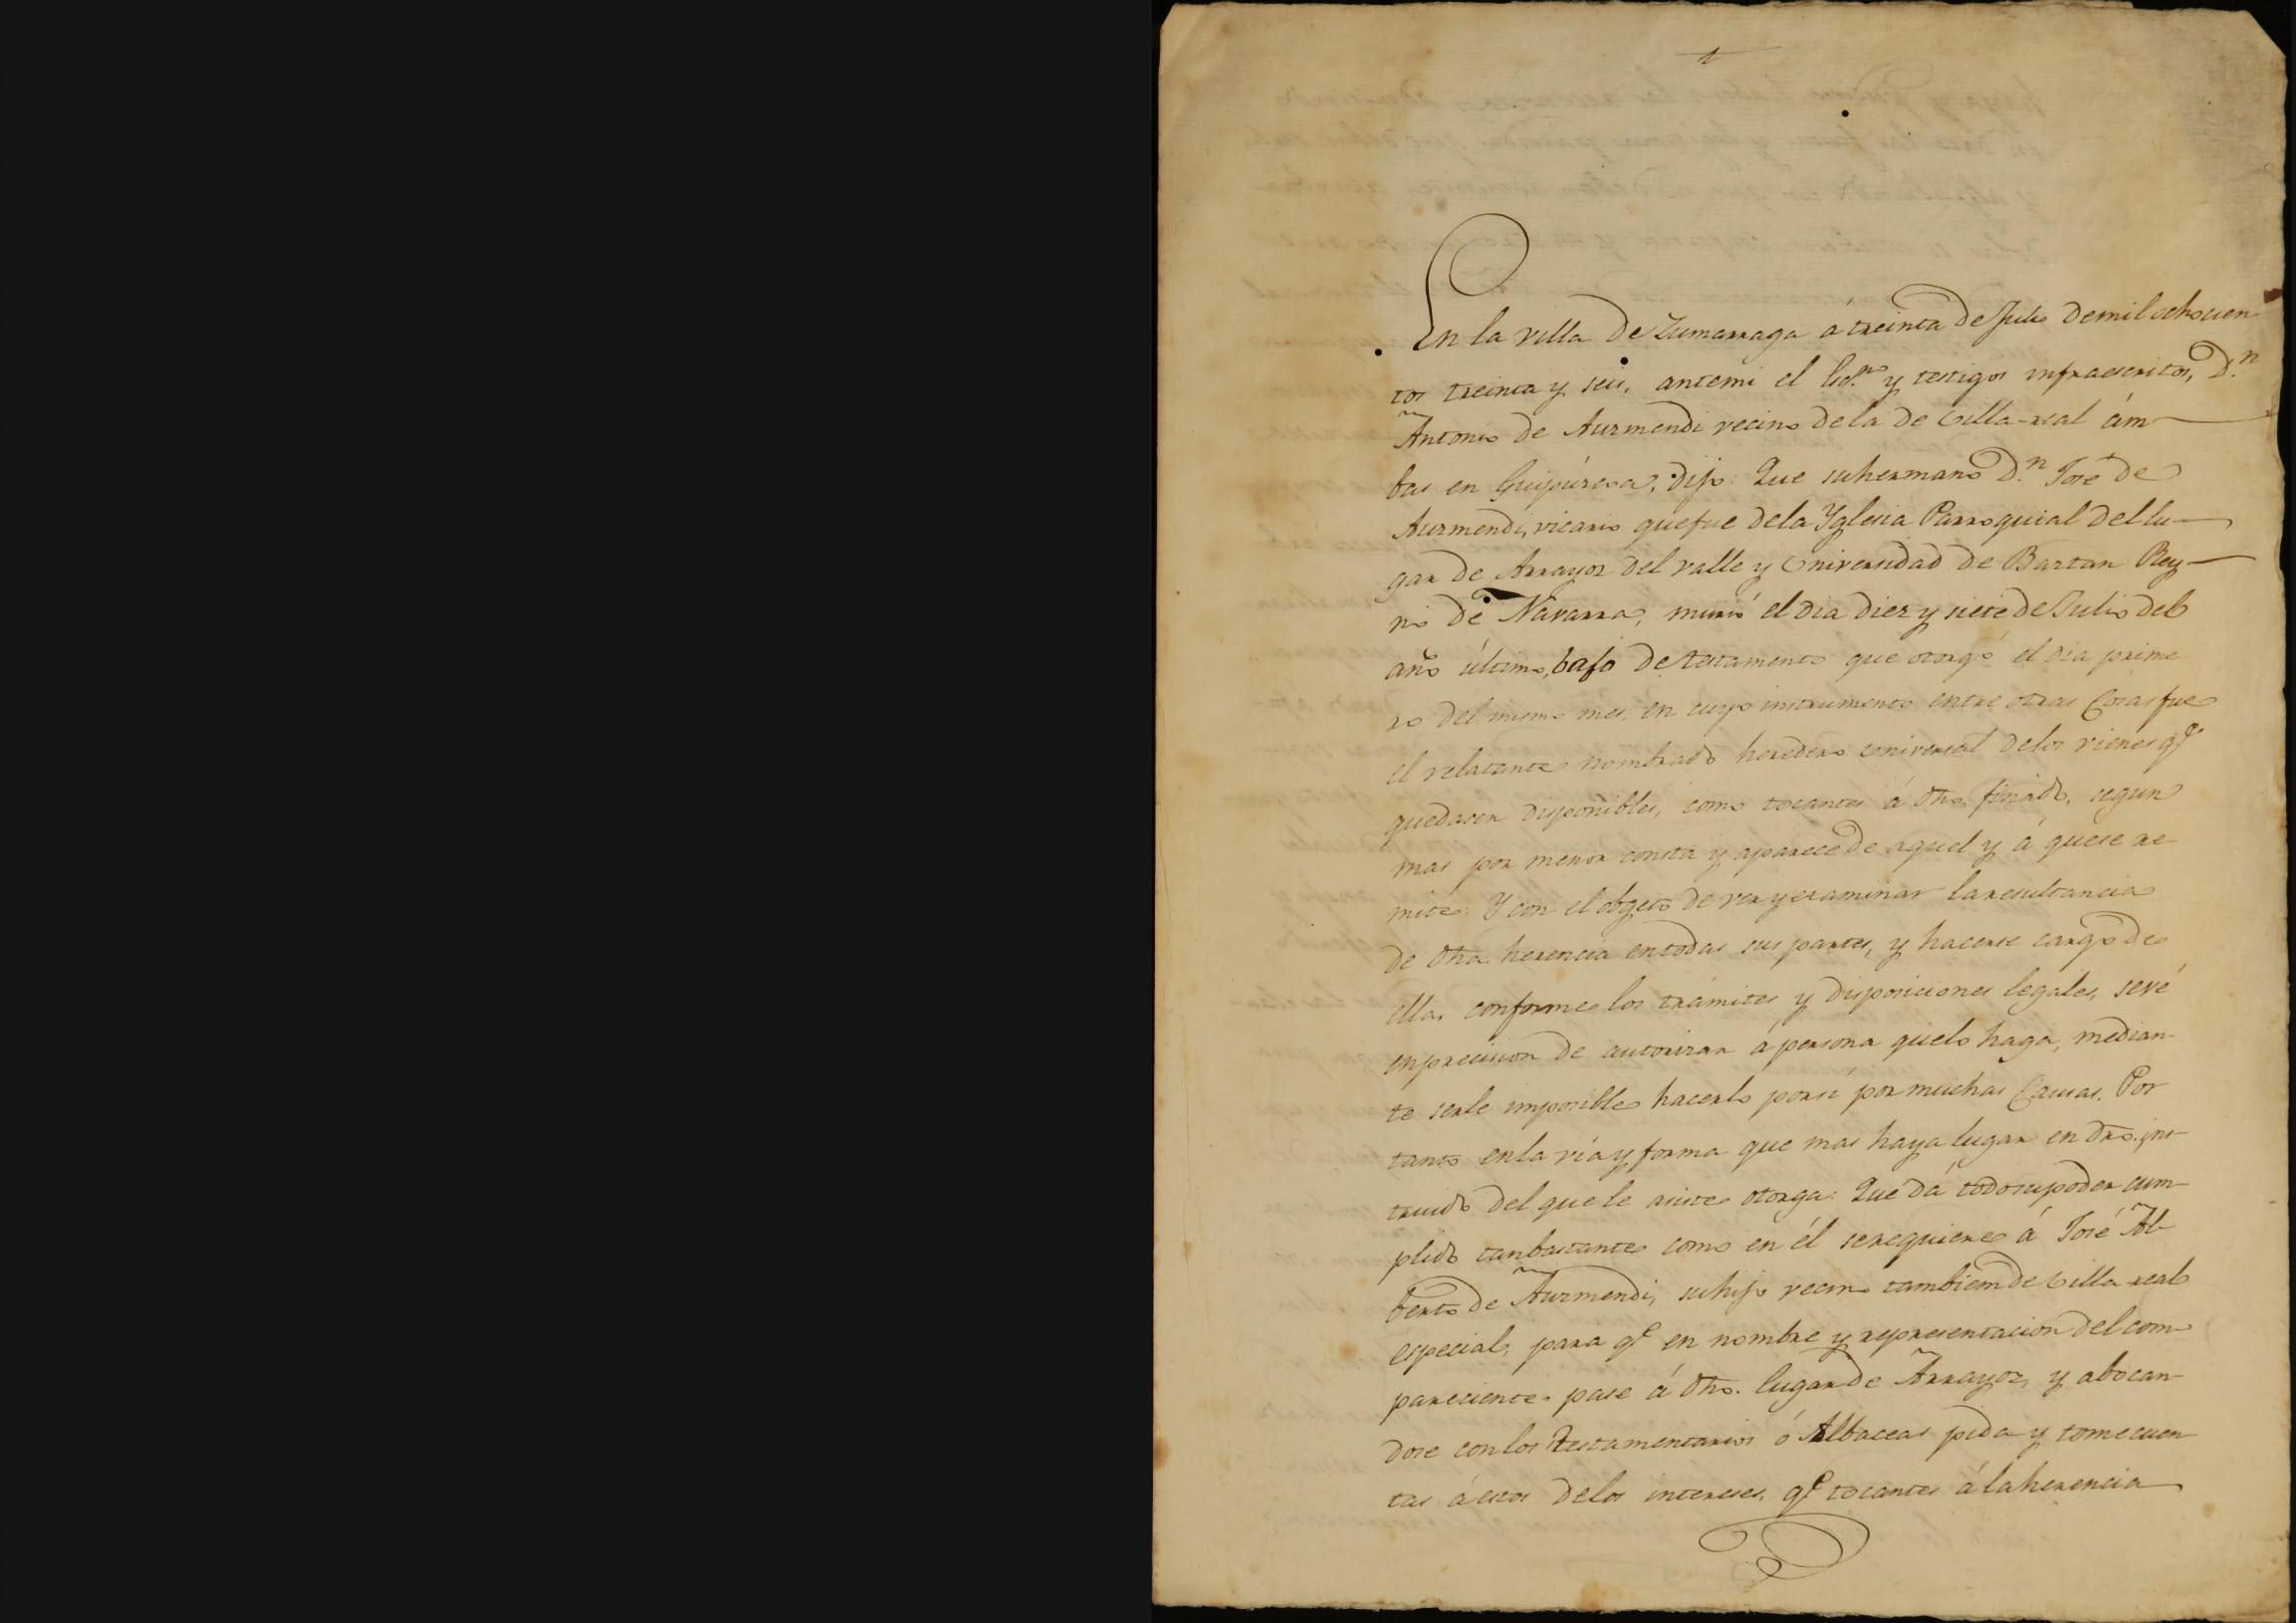 En la villa de Zumarraga á treinta de Julio de mil ochocien
tos treinta y seis, antemi el Esc.no y testigos infraescritos, D.n
Antonio de Auzmendi vecino de la de Villa-real ám-
bas en Guipúzcoa, dijo: Que su hermano D.n José de
Auzmendi, vicario que fue de la Yglesia Parroquial del lu-
gar de Arrayoz del valle y Universidad de Baztan Rey-
no de Navarra, murió el dia diez y siete de Julio del
año último, bajo de testamento que otorgó el dia prime
ro del mismo mes, en cuyo instrumento entre otras Cosas fue
el relatante nombrado heredero universal de los vienes q.e
quedasen disponibles, como tocantes á dho. finado, segun
mas por menor consta y aparece de aquel y á que se re-
mite: Y con el objeto de ver y examinar la resultancia
de dha. herencia en todas sus partes, y hacerse cargo de
ella, conforme los trámites y disposiciones legales, se vé
en precision de autorizar á persona que lo haga, median
te serle imposible hacerlo por sí por muchas Causas. Por
tanto en la vía y forma que mas haya lugar en dro. ins-
truido del que le asiste otorga: Que dá todo su poder cum-
plido tan bastante como en él se requiere á José Al-
berto de Auzmendi, su hijo vecino tambien de Villa real
especial, para q.e en nombre y representacion del com-
pareciente pase á dho. lugar de Arrayoz, y abocan-
dose con los testamentarios ó Albaceas pida y tome cuen
tas á estos de los intereses, q.e tocantes á la herencia